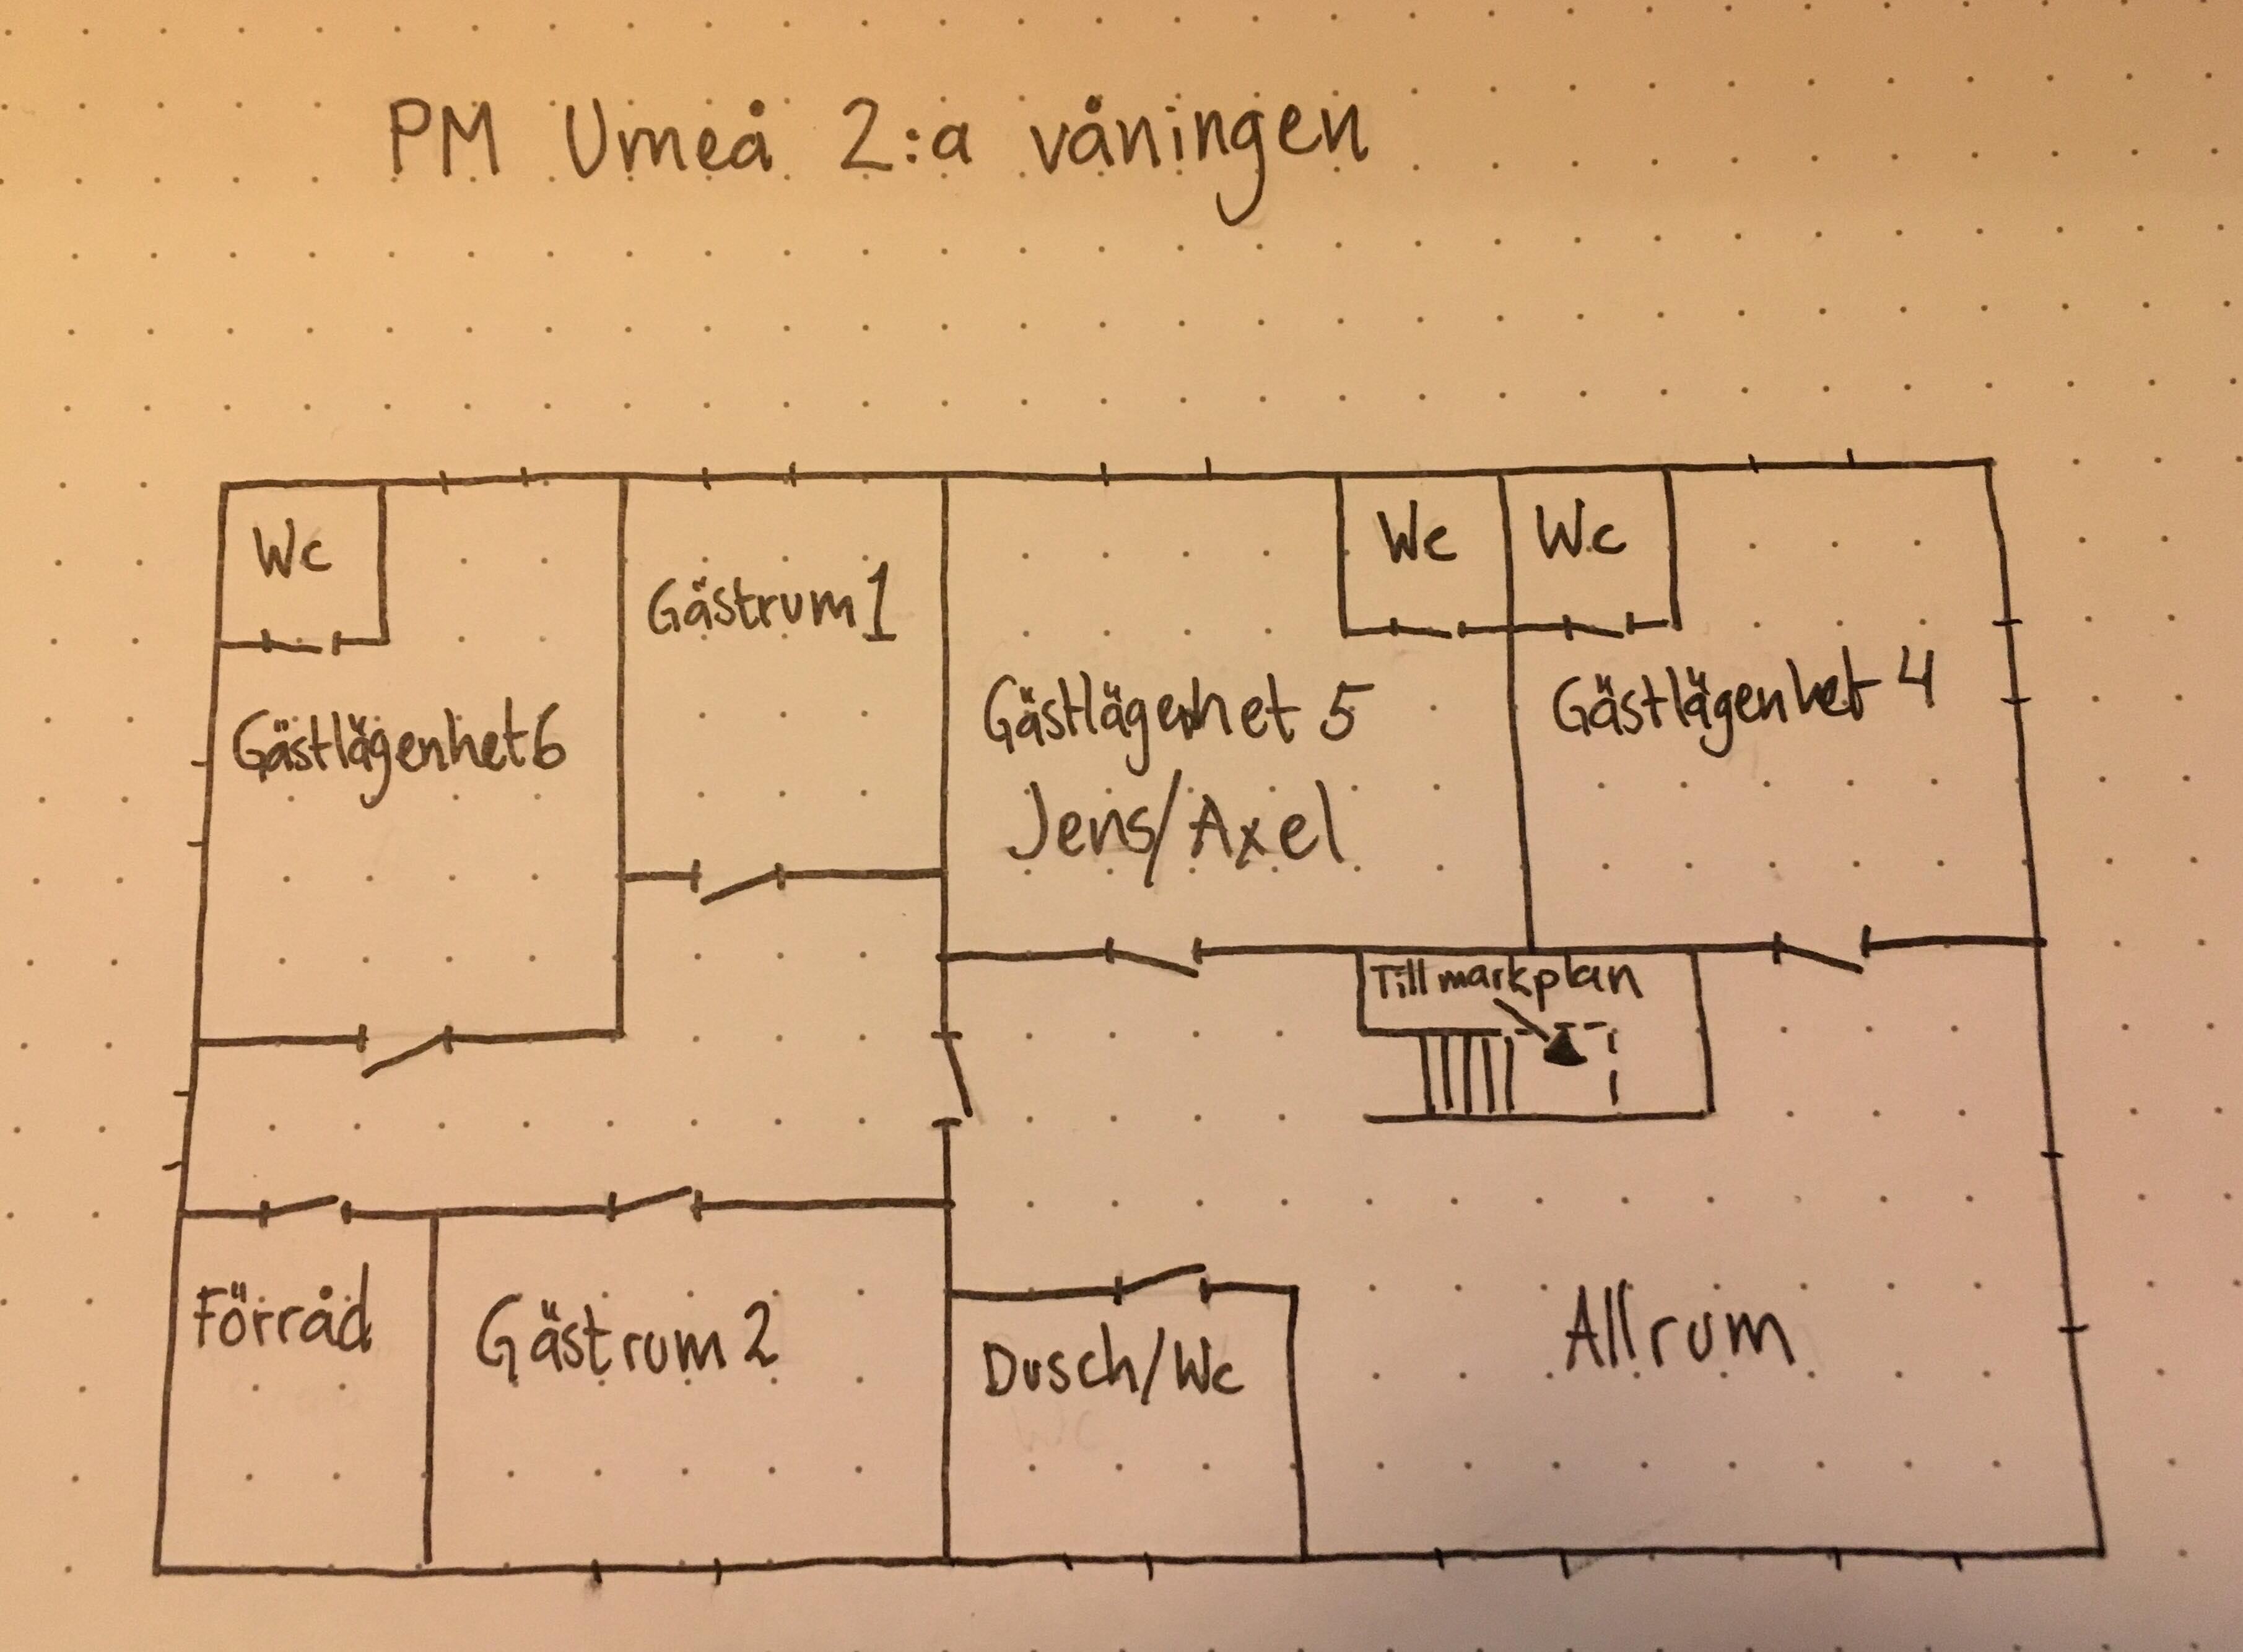 PM Umeå 2:a våningen
Wc
Wc
Wc
Gästrum 1
Gästlägenhet 6
Gästlägenhet 5
Jens/Axel
Gästlägenhet 4
Till markplan
Förråd
Gästrum 2
Dusch/Wc
Allrum